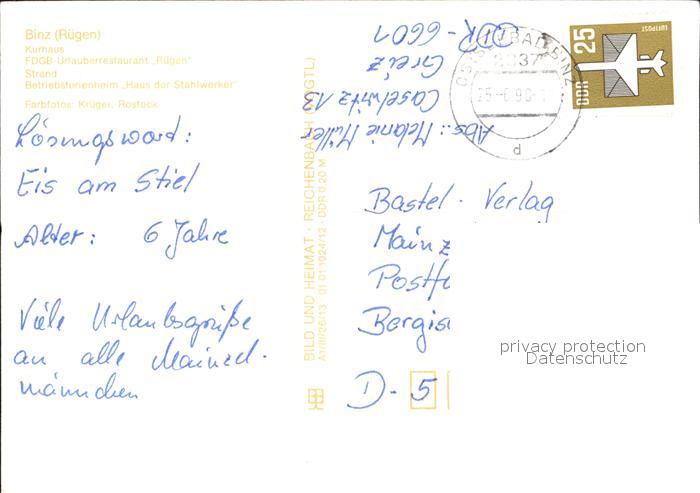 Binz (Rügen)
Kurhaus
FDGB-Urlauberrestaurant „Rügen"
Strand
Betriebsferienheim „Haus der Stahlwerker"
Farbfotos: Krüger, Rostock
Lösungswort:
Eis am Stiel
Alter: 6 Jahre
Viele Urlaubsgrüße
an alle Mainzel-
männchen
BILD UND HEIMAT · REICHENBACH (VOGTL)
A1/III/26/13 01 01 1024/12 DDR 0,20 M
Abs.: Melanie Müller
Caselwitz 13
Greiz
DDR - 6601
OSTSEEBAD BINZ
2337
25.-6.90
d
25
DDR
LUFTPOST
Bastel-Verlag
Mainz
Postf
Bergis
D - 5
privacy protection
Datenschutz